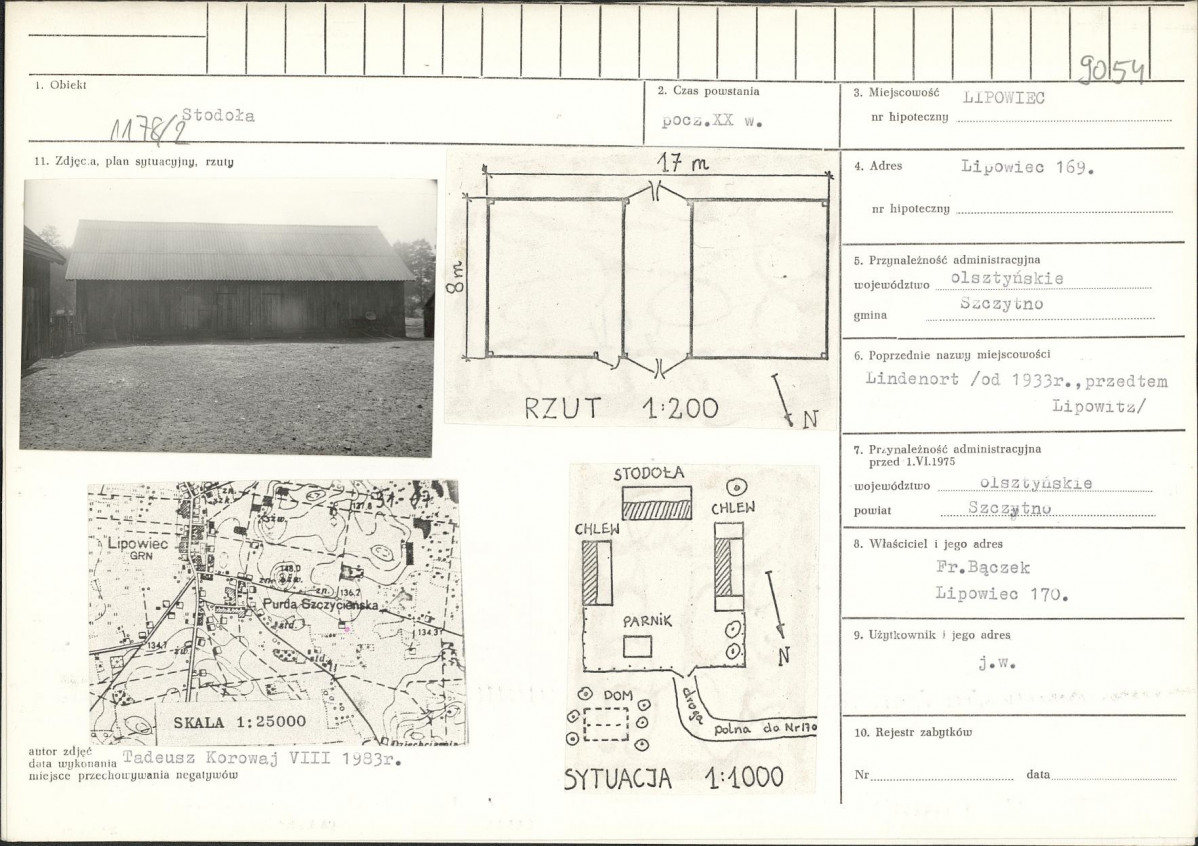 9054
1. Obiekt
Stodoła
1178/2
2. Czas powstania
pocz.XX w.
3. Miejscowość LIPOWIEC
nr hipoteczny
11. Zdjęcia, plan sytuacyjny, rzuty
17 m
8 m
RZUT 1:200
N
4. Adres Lipowiec 169.
nr hipoteczny
5. Przynależność administracyjna
województwo olsztyńskie
gmina Szczytno
6. Poprzednie nazwy miejscowości
Lindenort /od 1933r.,przedtem
Lipowitz/
7. Przynależność administracyjna
przed 1.VI.1975
województwo olsztyńskie
powiat Szczytno
8. Właściciel i jego adres
Fr.Bączek
Lipowiec 170.
9. Użytkownik i jego adres
j.w.
10. Rejestr zabytków
Nr data
Lipowiec
GRN
127.8
148.0
136.2
Purda Szczycieńska
134.31
134.7
SKALA 1:25000
STODOŁA
CHLEW
CHLEW
PARNIK
N
DOM
droga
polna do Nr 170
SYTUACJA 1:1000
autor zdjęć
data wykonania Tadeusz Korowaj VIII 1983r.
miejsce przechowywania negatywów